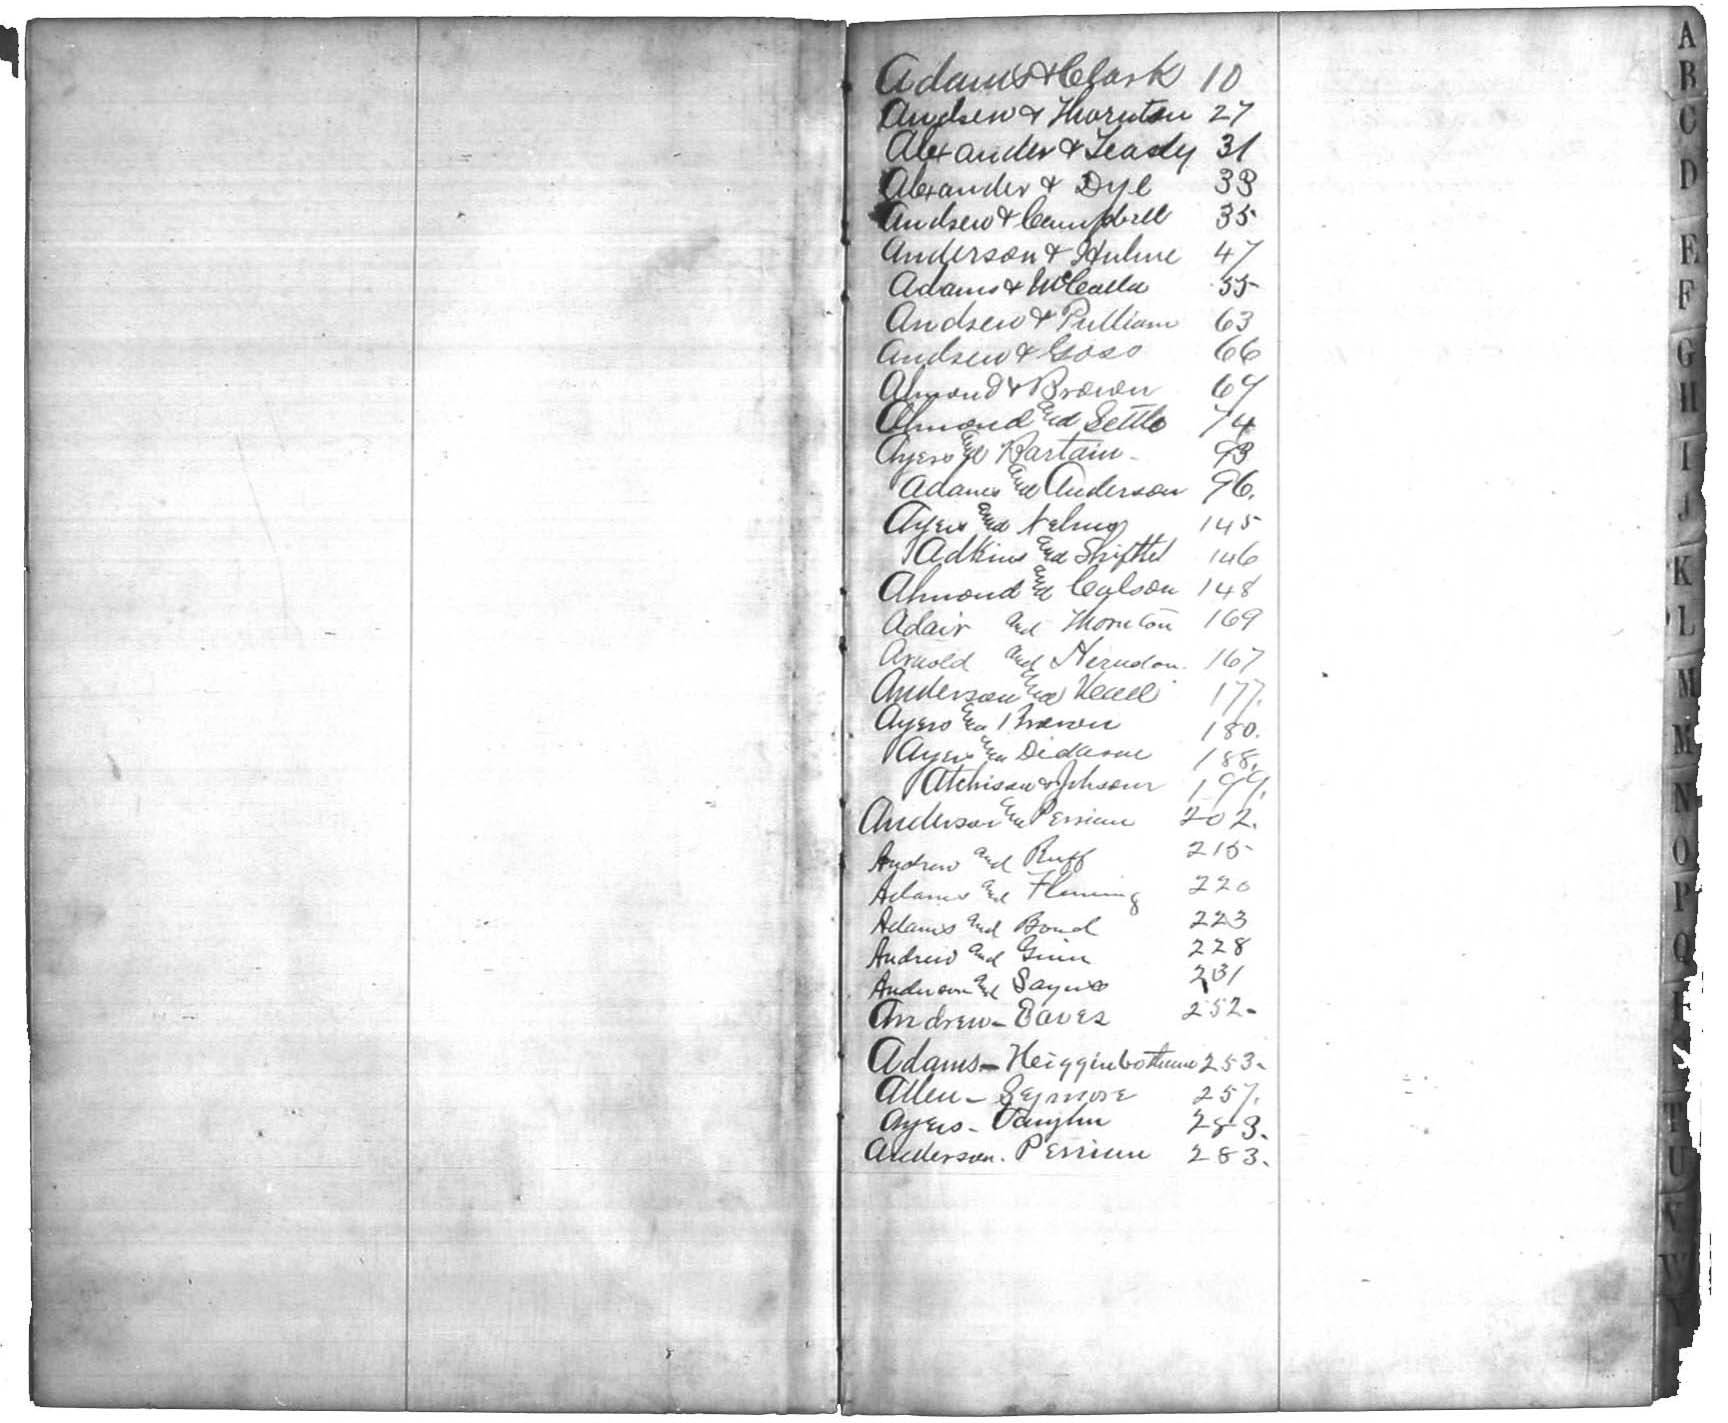 Adams & Clark 10
Andrew & Thornton 27
Alexander & Teasly 31
Alexander & Dye 33
Andrew & Campbell 35
Anderson & Hulme 47
Adams & McCalla 55
Andrew & Pulliam 63
Andrew & Goss 66
Almond & Brown 67
Almond and Settle 74
Ayers and Partain 93
Adams and Anderson 96.
Ayers and Nelms 145
Adkins and Shifflet 146
Almond and Colson 148
Adair and Thornton 169
Arnold and Herndon. 167
Anderson and 177.
Ayers and Brown 180.
Ayers and Dickerson 188.
Atchison & Johnson 199.
Anderson and Perriman 202.
Andrew and Ruff 215
Adams and Fleming 220
Adams and Bond 223
Andrew and Ginn 228
Anderson and Sayers 231
Andrew - Eaves 252-
Adams - Heigginbotham 253-
Allen - Seymore 257.
Ayers - Vaughn 283.
Anderson. Perriman 283.
A
B
C
D
E
F
G
H
I
J
K
L
M
M
N
O
P
Q
T
U
V
W
Y